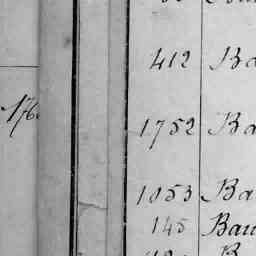 412 Ba
176
1752 Ba
1853 Ba
145 Bau